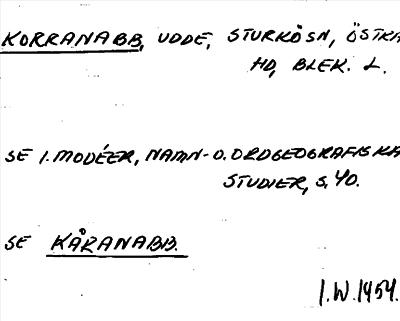 KORRANABB, UDDE, STURKÖSN, ÖSTRA
HD, BLEK. L.
SE I. MODÉER, NAMN- O. ORDGEOGRAFISKA
STUDIER, S. 40.
SE KÅRANABB.
I.W. 1954.